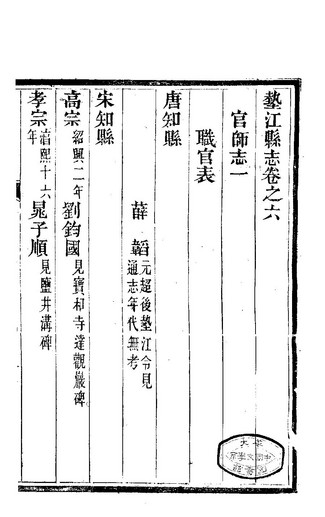 墊江縣志卷之六
官師志一
職官表
唐知縣
薛韜元超後墊江令見通志年代無考
宋知縣
高宗紹興二年劉鈞國見寶和寺達觀巖碑
孝宗淳熙十六年晁子順見鹽井溝碑